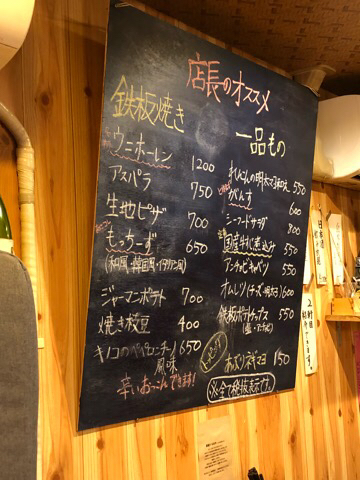 店長のオススメ
鉄板焼き
ウニホーレン 1200
アスパラ 750
生地ピザ 700
もっちーず 650
(和風、韓国風、イタリアン風)
ジャーマンポテト 700
焼き枝豆 400
キノコのペペロンチーノ風味 650
辛いおつこんできます!
一品もの
れんこんの明太マヨ和え 550
がんす 600
シーフードサラダ 800
国産牛すじ煮込み 550
アンチョビキャベツ 550
オムレツ(チーズ・明太子) 600
鉄板ポテトチップス 550
(塩・
トッピング
あぶりネギマヨ 150
※全て税抜表示です。